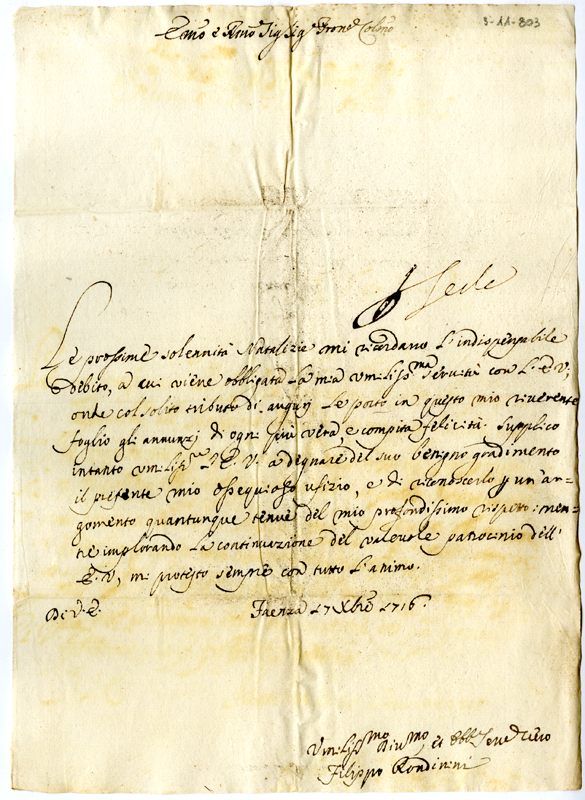 Em̃o e Rm̃o Sig Sig.e Prone Colm̃o
3-11-803
fede
Le prossime solennità Natalizie mi ricordano l'indispensabile
debito, a cui viene obbligata la mia umiliss.ma servitù con L'E.V,
onde col solito tributo di augurj Le porto in questo mio riverente
foglio gli annunzj di ogni più vera, e compita felicità. Supplico
intanto umiliss.te L'E.V. a degnare del suo benigno gradimento
il presente mio ossequioso ufizio, e di riconoscerlo p un'ar=
gomento quantunque tenue del mio profondissimo rispetto: men=
tre implorando la continuazione del valevole patrocinio dell'
E.V, mi protesto sempre con tutto l'animo.
Di V.E.
Faenza 17 Xbre 1716.
Umiliss.mo Diu.mo, et Obb. Seru.e vero
Filippo Rondinini